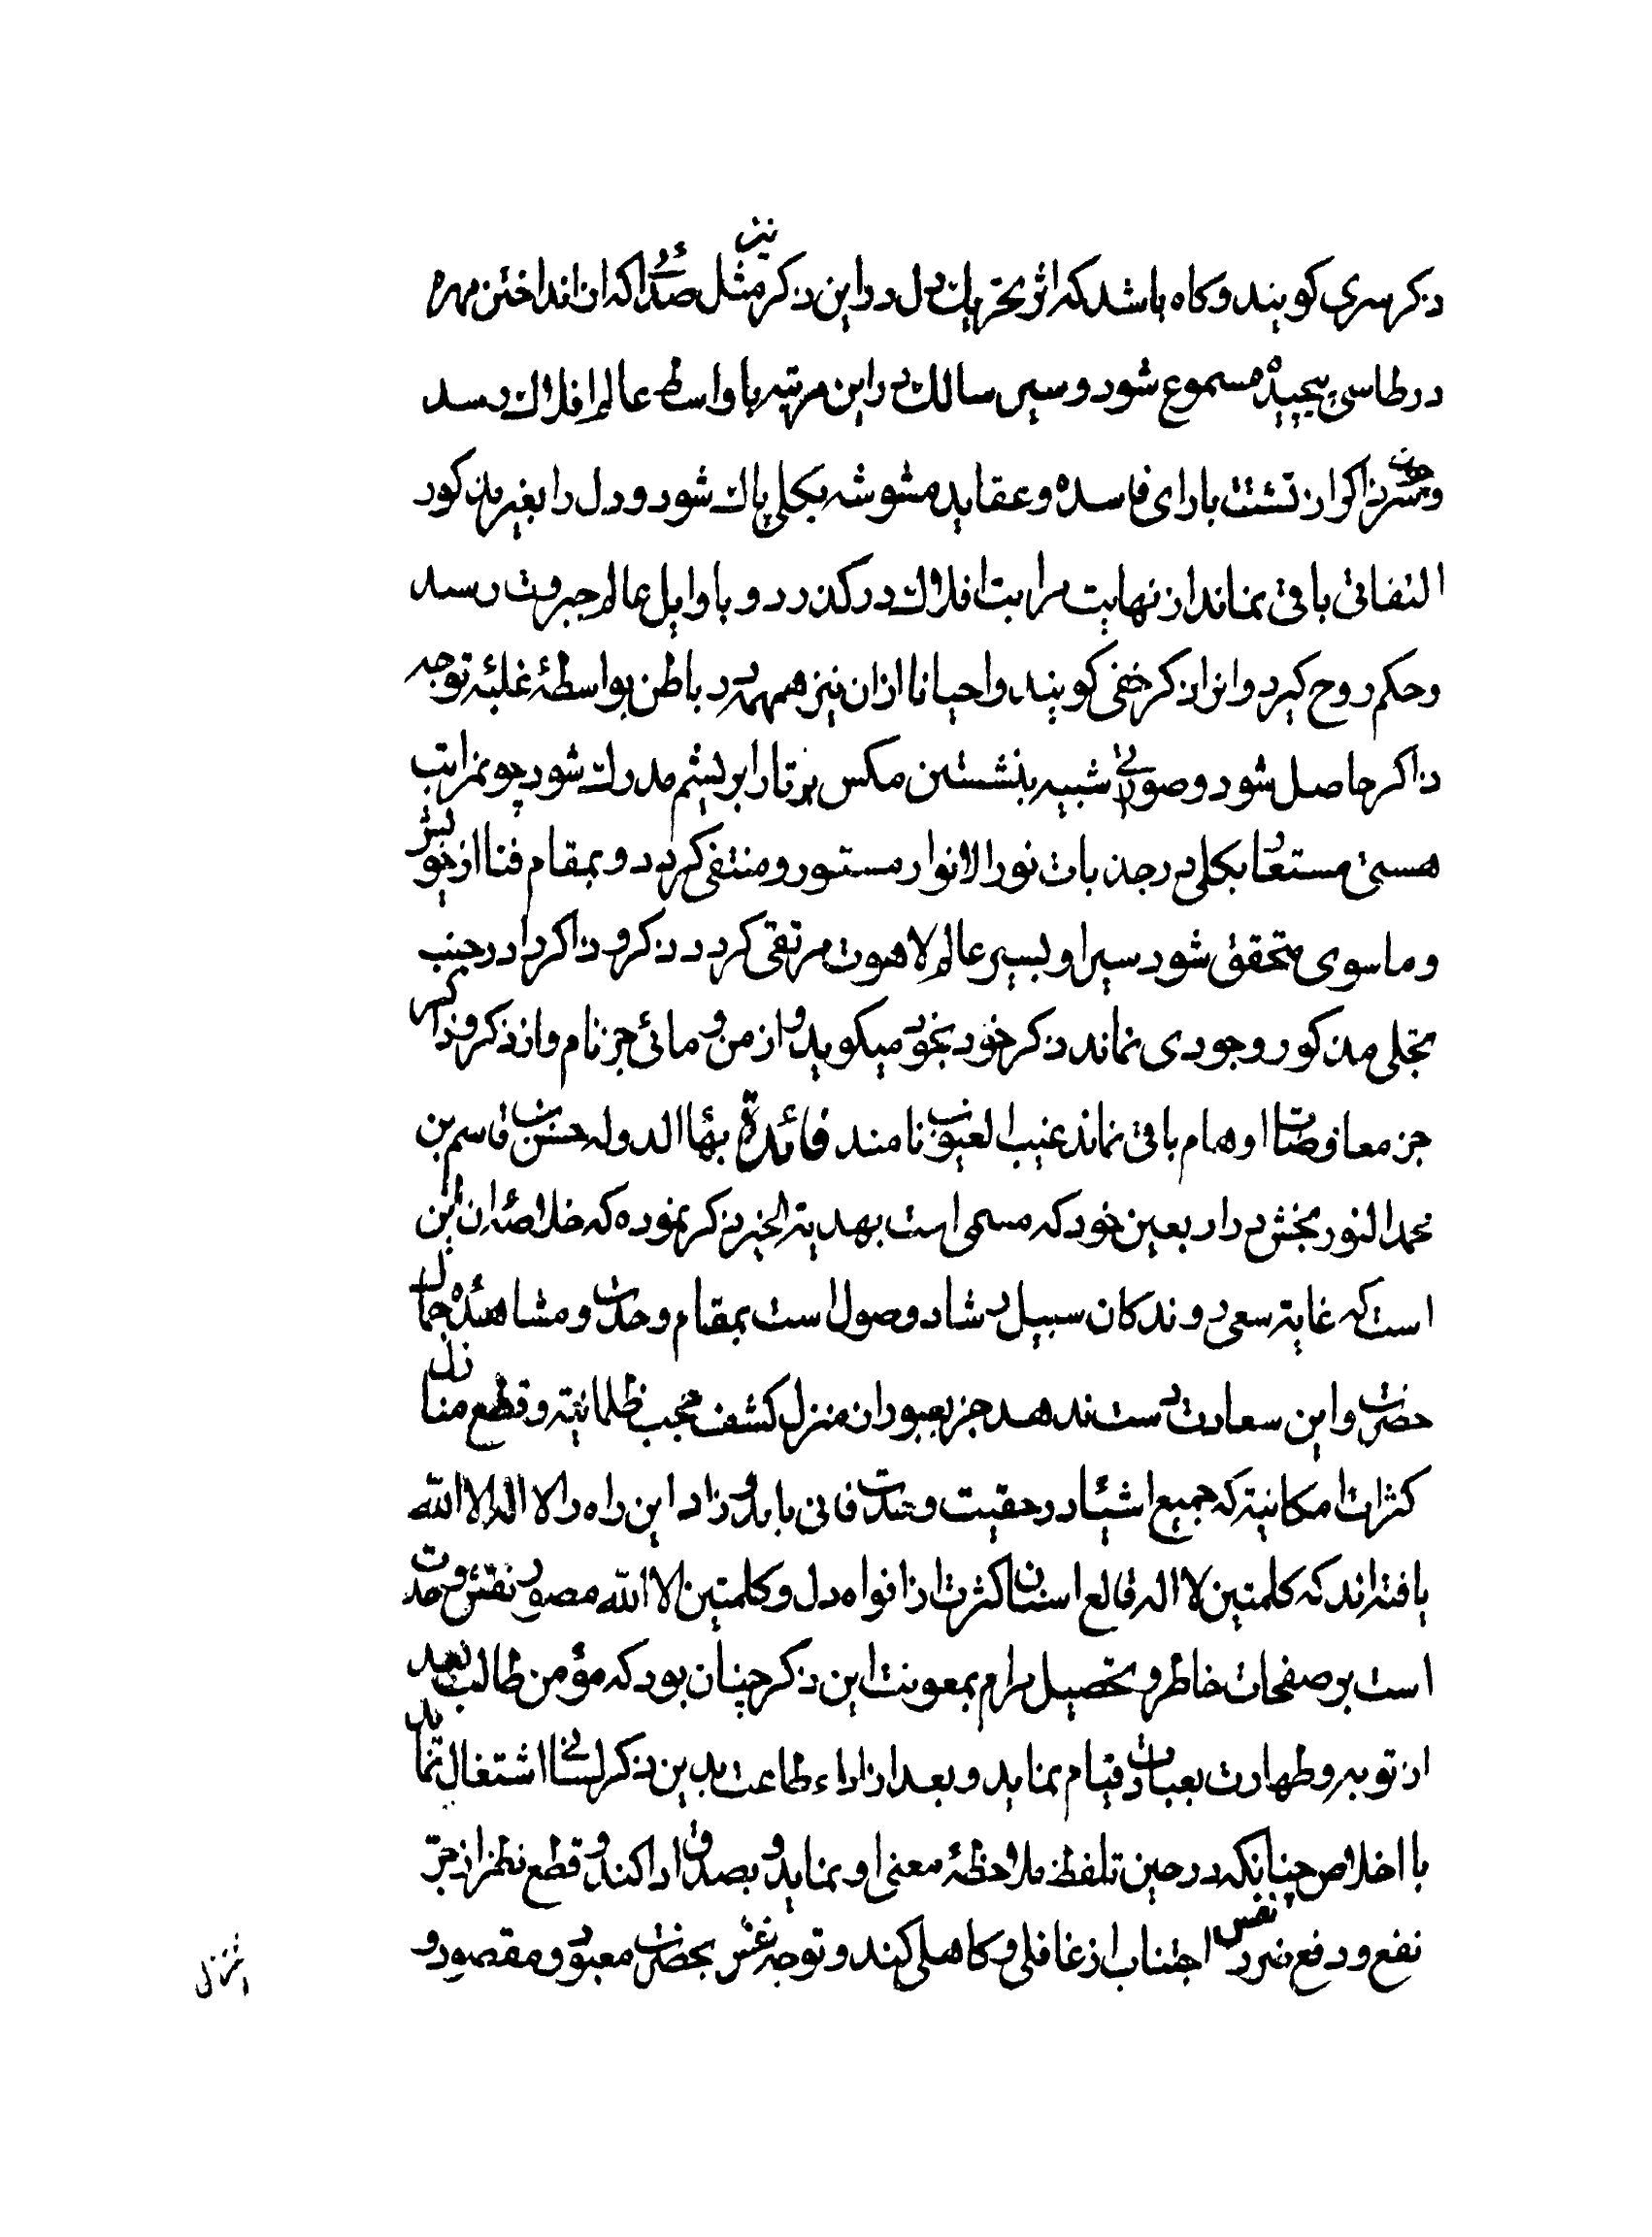 ذکر سری کویند و کاه باشد که اثر تحریك دل در این ذکر نیز مثل صدائی که از انداختن مهره
در طاسی پیچیده مسموع شود و سیر سالك در این مرتبه باواسط عالم افلاك رسد
و چون سر ذاکر از تشتت بارای فاسده و عقاید مشوشه بکلی پاك شود و دل را بغیر مذکور
التفاتی باقی نماند از نهایت مراتب افلاك درکذرد و باوایل عالم جبروت رسد
و حکم روح کیرد و انرا ذکر خفی کویند و احیانا ازان نیز همهمه در باطن بواسطهٔ غلبهٔ توجه
ذاکر حاصل شود و صوتی شبیه بنشستن مکس بر تار ابریشم مدرك شود چو مراتب
هستی مستعار بکلی در جذبات نور الانوار مستور و منتفی کردد و بمقام فنا از خویش
و ماسوی متحقق شود سیر او بسیر عالم لاهوت مرتقی کردد ذکر و ذاکر را در جنب
تجلی مذکور وجودی نماند ذکر خود بخود میکوید و از من و مائی جز نام و از ذکر و ذاکر
جز معارضات اوهام باقی نماند غیب الغیوب نامند فائدة بهاء الدوله حسن بن قاسم بن
محمد النور بخش در اربعین خود که مسمی است بهدیة الخیر ذکر نموده که خلاصهٔ ان این
است که غایة سعی روندکان سبیل رشاد وصول است بمقام وحدت و مشاهدهٔ جمال
حضرت و این سعادت دست ندهد جز بعبور از منزل کشف حجب ظلمانیة و قطع منازل
کثرات امکانیة که جمیع اشیا در حقیت وحدت فانی یابد و زاد این راه را لا اله الا الله
یافته اند که کلمتین لا اله قالع اسنان کثرت از افواه دل و کلمتین الا الله مصور نقش وحدت
است بر صفحات خاطر و تحصیل مرام بمعونت این ذکر چنان بود که مؤمن طالب بعد
از توبه و طهارت بعبادت قیام نماید و بعد از اداء طاعت بدین ذکر لسانی اشتغال نماید
با اخلاص چنانکه در حین تلفظ ملاحظهٔ معنی او نماید و بصدق ادا کند و قطع نظر از جرّ
نفع و دفع ضرر نفس اجتناب از غافلی و کاهلی کند و توجه بحضرت معبود و مقصود و